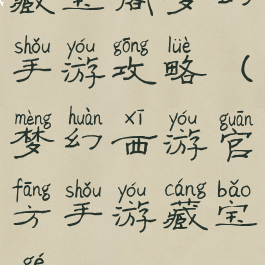 藏宝阁梦幻
shǒu yóu gōng lüè
手游攻略（
mèng huàn xī yóu guān
梦幻西游官
fāng shǒu yóu cáng bǎo
方手游藏宝
gé